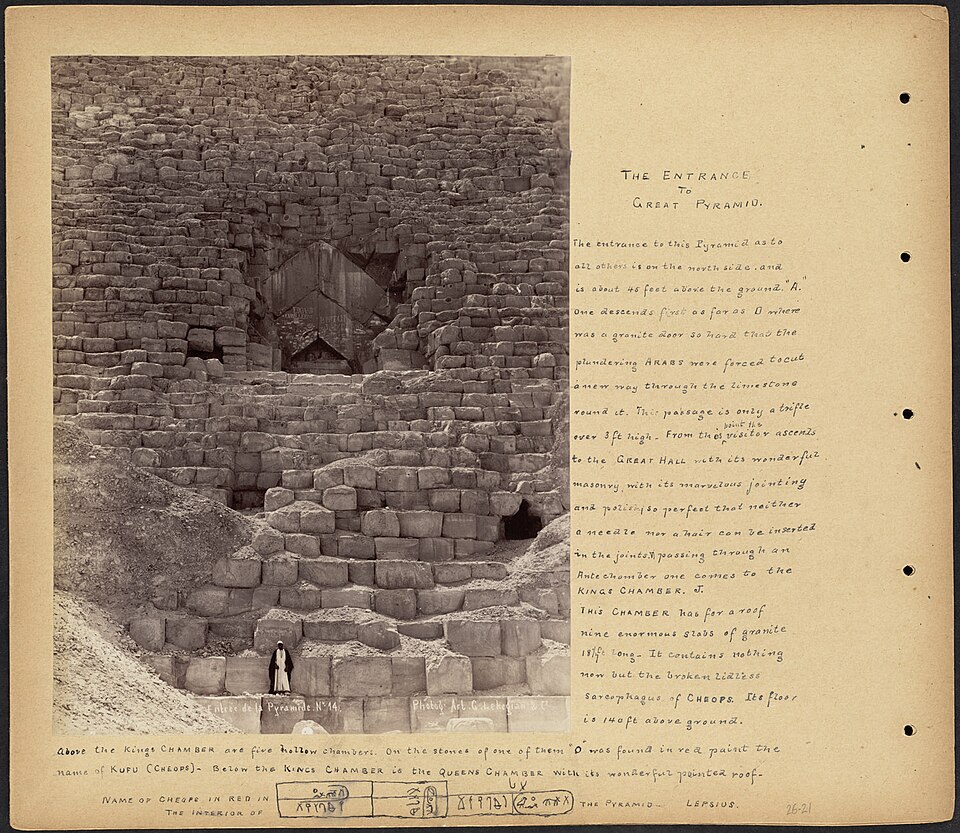 THE ENTRANCE
TO
GREAT PYRAMID.
The entrance to this Pyramid as to
all others is on the north side. and
is about 45 feet above the ground. "A.
One descends first as far as D where
was a granite door so hard that the
plundering ARABS were forced to cut
a new way through the limestone
round it. This passage is only a trifle
over 3 ft high - From this point the visitor ascents
to the GREAT HALL with its wonderful
masonry, with its marvelous jointing
and polish, so perfect that neither
a needle nor a hair can be inserted
in the joints, passing through an
Antechamber one comes to the
KINGS CHAMBER. J.
THIS CHAMBER has for a roof
nine enormous slabs of granite
18½ ft long - It contains nothing
now but the broken lidless
sarcophagus of CHEOPS. Its floor
is 140 ft above ground.
Entrée de la Pyramide. Nº 14.
Photogr. Art. G. Lekegian & Cº
Above the Kings CHAMBER are five hollow chambers. On the stones of one of them "O" was found in red paint the
name of KUFU (CHEOPS) - Below the KINGS CHAMBER is the QUEENS CHAMBER with its wonderful pointed roof -
NAME OF CHEOPS IN RED IN
THE INTERIOR OF
THE PYRAMID - LEPSIUS.
26-21